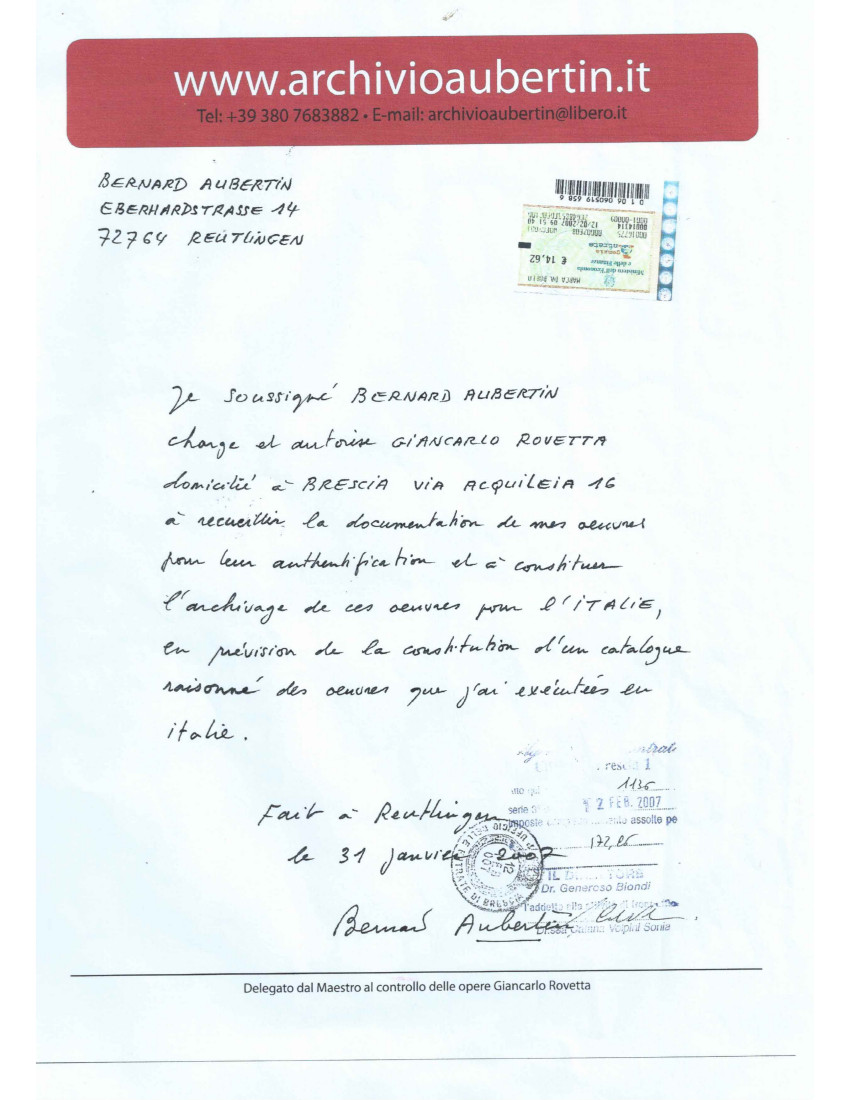 www.archivioaubertin.it
Tel: +39 380 7683882 • E-mail: archivioaubertin@libero.it
BERNARD AUBERTIN
EBERHARDSTRASSE 14
72764 REUTLINGEN
MARCA DA BOLLO
€ 14,62
Je soussigné BERNARD AUBERTIN
charge et autorise GIANCARLO ROVETTA
domicilié à BRESCIA VIA ACQUILEIA 16
à recueillir la documentation de mes oeuvres
pour leur authentification et à constituer
l'archivage de ces oeuvres pour l'ITALIE,
en prévision de la constitution d'un catalogue
raisonné des oeuvres que j'ai exécutées en
italie.
1136
serie 12 FEB. 2007
assolte pe
Fait à Reutlingen
le 31 janvier 2007
Dr. Generoso Biondi
Volpini Sonia
Bernard Aubertin
Delegato dal Maestro al controllo delle opere Giancarlo Rovetta